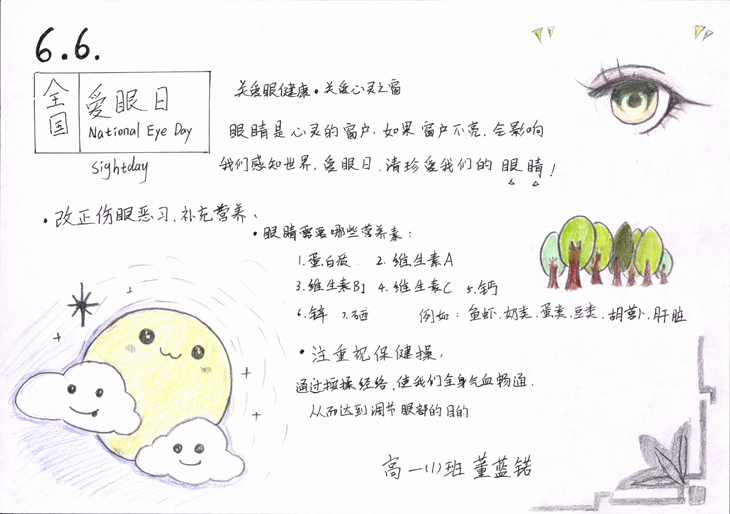 6.6.
全国 爱眼日
National Eye Day
Sightday
关爱眼健康·关爱心灵之窗
眼睛是心灵的窗户,如果窗户不亮,会影响
我们感知世界,爱眼日,请珍爱我们的眼睛!
·改正伤眼恶习,补充营养、
·眼睛需要哪些营养素:
1.蛋白质 2.维生素A
3.维生素B1 4.维生素C 5.钙
6.锌 7.硒 例如:鱼虾,奶类,蛋类,豆类,胡萝卜,肝脏
·注重视保健操,
通过按揉经络,使我们全身气血畅通.
从而达到调节眼部的目的
高一(1)班 董蓝锘